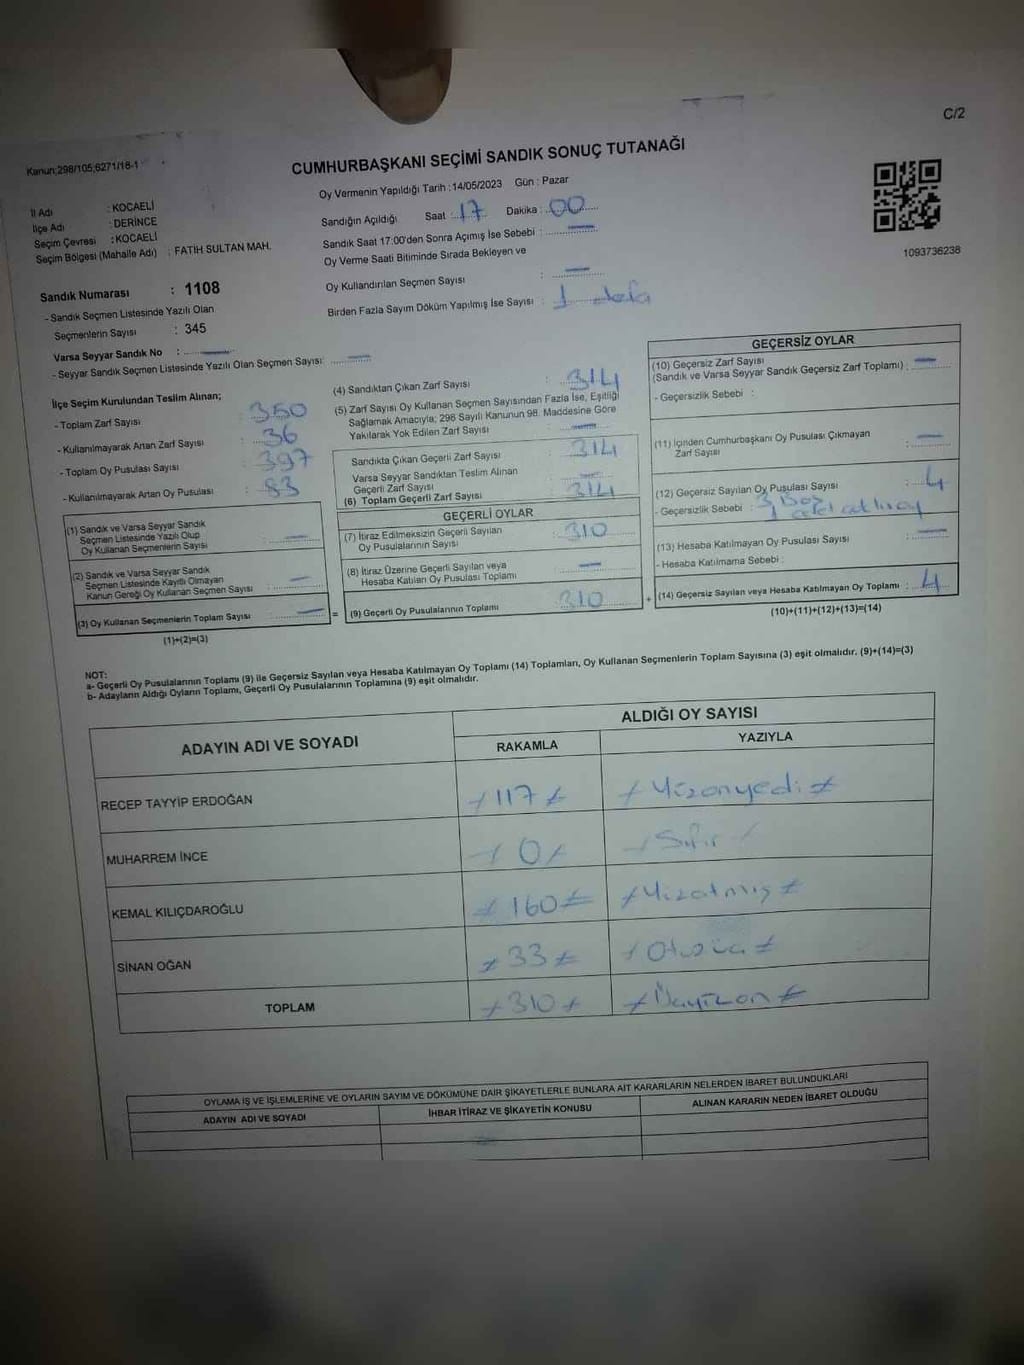 C/2
Kanun;298/105;6271/18-1
CUMHURBAŞKANI SEÇİMİ SANDIK SONUÇ TUTANAĞI
Oy Vermenin Yapıldığı Tarih : 14/05/2023 Gün : Pazar
İl Adı : KOCAELİ
İlçe Adı : DERİNCE
Seçim Çevresi : KOCAELİ
Seçim Bölgesi (Mahalle Adı) : FATİH SULTAN MAH.
Sandık Numarası : 1108
- Sandık Seçmen Listesinde Yazılı Olan
Seçmenlerin Sayısı : 345
Varsa Seyyar Sandık No : —
- Seyyar Sandık Seçmen Listesinde Yazılı Olan Seçmen Sayısı: —
Sandığın Açıldığı Saat : 17 Dakika : 00
Sandık Saat 17:00'den Sonra Açımış İse Sebebi : —
Oy Verme Saati Bitiminde Sırada Bekleyen ve
Oy Kullandırılan Seçmen Sayısı : —
Birden Fazla Sayım Döküm Yapılmış İse Sayısı : 1 defa
1093736238
İlçe Seçim Kurulundan Teslim Alınan;
- Toplam Zarf Sayısı : 350
- Kullanılmayarak Artan Zarf Sayısı : 36
- Toplam Oy Pusulası Sayısı : 397
- Kullanılmayarak Artan Oy Pusulası : 83
(1) Sandık ve Varsa Seyyar Sandık
Seçmen Listesinde Yazılı Olup
Oy Kullanan Seçmenlerin Sayısı : —
(2) Sandık ve Varsa Seyyar Sandık
Seçmen Listesinde Kayıtlı Olmayan
Kanun Gereği Oy Kullanan Seçmen Sayısı : —
(3) Oy Kullanan Seçmenlerin Toplam Sayısı : —
(1)+(2)=(3)
(4) Sandıktan Çıkan Zarf Sayısı : 314
(5) Zarf Sayısı Oy Kullanan Seçmen Sayısından Fazla İse, Eşitliği
Sağlamak Amacıyla; 298 Sayılı Kanunun 98. Maddesine Göre
Yakılarak Yok Edilen Zarf Sayısı : —
Sandıkta Çıkan Geçerli Zarf Sayısı : 314
Varsa Seyyar Sandıktan Teslim Alınan
Geçerli Zarf Sayısı : —
(6) Toplam Geçerli Zarf Sayısı : 314
GEÇERLİ OYLAR
(7) İtiraz Edilmeksizin Geçerli Sayılan
Oy Pusulalarının Sayısı : 310
(8) İtiraz Üzerine Geçerli Sayılan veya
Hesaba Katılan Oy Pusulası Toplamı : —
= (9) Geçerli Oy Pusulalarının Toplamı : 310
GEÇERSİZ OYLAR
(10) Geçersiz Zarf Sayısı
(Sandık ve Varsa Seyyar Sandık Geçersiz Zarf Toplamı) : —
- Geçersizlik Sebebi :
(11) İçinden Cumhurbaşkanı Oy Pusulası Çıkmayan
Zarf Sayısı : —
(12) Geçersiz Sayılan Oy Pusulası Sayısı : 4
- Geçersizlik Sebebi : 3 Boş
1
(13) Hesaba Katılmayan Oy Pusulası Sayısı : —
- Hesaba Katılmama Sebebi :
+ (14) Geçersiz Sayılan veya Hesaba Katılmayan Oy Toplamı : 4
(10)+(11)+(12)+(13)=(14)
NOT:
a- Geçerli Oy Pusulalarının Toplamı (9) ile Geçersiz Sayılan veya Hesaba Katılmayan Oy Toplamı (14) Toplamları, Oy Kullanan Seçmenlerin Toplam Sayısına (3) eşit olmalıdır. (9)+(14)=(3)
b- Adayların Aldığı Oyların Toplamı, Geçerli Oy Pusulalarının Toplamına (9) eşit olmalıdır.
ADAYIN ADI VE SOYADI ALDIĞI OY SAYISI
RAKAMLA YAZIYLA
RECEP TAYYİP ERDOĞAN 117 Yüzonyedi
MUHARREM İNCE 0 Sıfır
KEMAL KILIÇDAROĞLU 160 Yüzatmış
SİNAN OĞAN 33 Otuzüç
TOPLAM 310 Üçyüzon
OYLAMA İŞ VE İŞLEMLERİNE VE OYLARIN SAYIM VE DÖKÜMÜNE DAİR ŞİKAYETLERLE BUNLARA AİT KARARLARIN NELERDEN İBARET BULUNDUKLARI
ADAYIN ADI VE SOYADI İHBAR İTİRAZ VE ŞİKAYETİN KONUSU ALINAN KARARIN NEDEN İBARET OLDUĞU